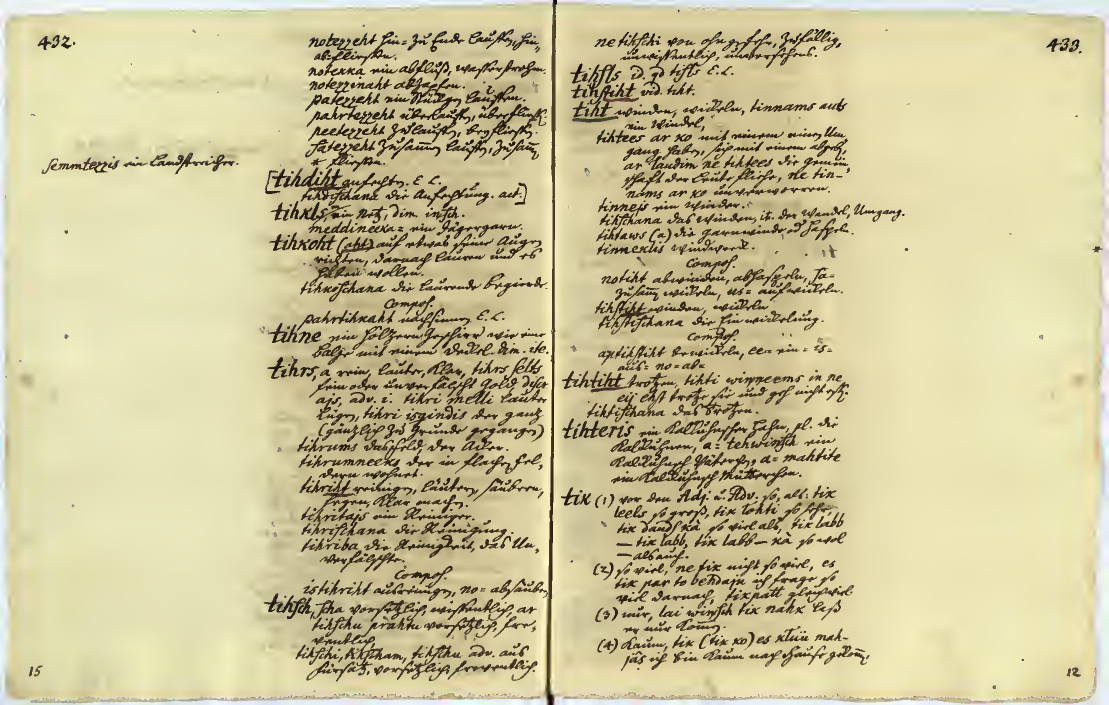 432.
notezzeht hin= zu Ende lauffen, hin,
abfließen.
notekka ein abfluß, wasserstrohm.
notezzinaht abzapfen.
patezzeht ein Stückgen lauffen.
pahrtezzeht überlauffen, überfließen
peetezzeht zulauffen, beyfließen.
satezzeht zusammen lauffen, zusam
fließen.
semmtezzis ein Landstreicher.
[tihdiht anfechten. E. L.
tihdischana die Anfechtung. act.]
tihkls, ein Netz, dim. insch.
meddineeka= ein Jägergarn.
tihkoht (aht) auf etwas seine Augen
richten, darnach lauren und es
haben wollen.
tihkoschana die laurende begierde.
Compos.
pahrtihkaht nachsinnen E. L.
tihne ein hölzern Geschirr wie eine
balge mit einem Deckel. dim. ite.
tihrs, a rein, lauter, klar, tihrs selts
fein oder unverfälscht Gold
ajs, adv. i. tihri melli lauter
Lügen, tihri isgindis der ganz
(gänzlich zu Grunde gegangen)
tihrums das feld, der Acker.
tihrumneeks der in flachen fel,
dern wohnet.
tihriht reinigen, läutern, säubern,
fegen, klar machen.
tihritajs ein Reiniger.
tihrischana die Reinigung.
tihriba die Reinigkeit, das Un,
verfälschte.
Compos.
istihriht ausreinigen, no= absäubern
tihsch, scha vorsetzlich, wissentlich, ar
tihschu prahtu vorsetzlich, fre,
ventlich.
tihschi, tihscham, tihschu adv. aus
fürsatz, vorsetzlich, freventlich.
15
433.
netihschi von ohngefehr, zufällig,
unwissentlich, unversehens.
tihsls id. qd tihls E. L.
tihstiht vid. tiht.
tiht winden, wickeln, tinnams auts
ein Windel,
tihtees ar ko mit einem einen Um
gang haben, sich mit einem abgeb,
ar laudim ne tihtees die gemein
schaft der Leute fliehe, ne tin-
nams ar ko unverworren.
tinnejs ein winder.
tihschana das Winden, it. der Wandel, Umgang.
tihtaws (a) die garnwinde od haspeln.
tinneklis windwerk.
Compos.
notiht abwinden, abhaspeln, sa=
zusam wickeln, us= aufwickeln.
tihstiht winden, wickeln
tihstischana die Einwickelung.
Compos.
aptihstiht bewickeln, ee= ein= is=
aus= no= ab=
tihtiht trotzen, tihti winneems in ne
eij ehst trotze sie und geh nicht eß.
tihtischana das Trotzen.
tihteris ein Kalkuhnscher hahn, pl. die
Kalkuhnen, a= tehwinsch ein
Kalkuhnsch Väterchen, a= mahtite
ein Kalkuhnsch Mütterchen.
tik (1) vor den Adj. u. Adv. so, als. tik
leels so groß, tik lohti so sehr.
tik daudf ka so viel als, tik labb
— tik labb, tik labb — ka so wol
— als auch.
(2) so viel, ne tik nicht so viel, es
tik par to behdaju ich frage so
viel darnach, tikpatt gleichviel
(3) nur, lai winsch tik nahk laß
er nur komen.
(4) kaum, tik (tik ko) es kluu mah-
jâs ich bin kaum nach hause gekom,
12